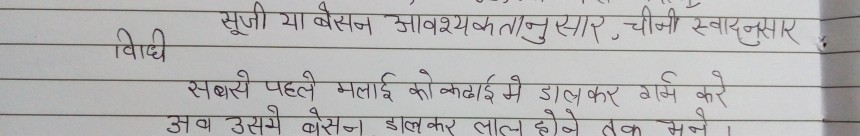 सूजी या बेसन आवश्यकतानुसार, चीनी स्वादनुसार
विधि
सबसे पहले मलाई को कढाई मे डालकर गर्म करे
अब उसमे बेसन डालकर लाल होने तक भुने।